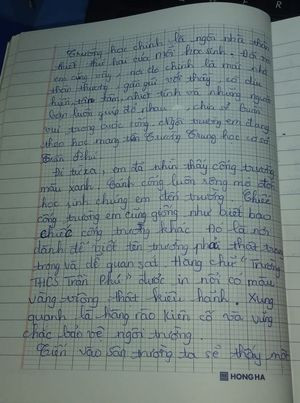 Trường học chính là ngôi nhà thân
thuột thứ hai của mỗi học sinh. Đối với
em cũng vậy, nơi đó chính là mái nhà
thân thương, gần gũi với thầy cô dịu
hiền, tâm, nhiệt tình và những người
bạn luôn giúp đỡ nhau, chia sẻ buồn
vui trong cuộc sống. Ngôi trường em đang
theo học mang tên Trường Trung học cơ sở
Trần Phú.
Đi từ xa, em đã nhìn thấy cổng trường
màu xanh. Cánh cổng luôn rộng mở đón
học sinh chúng em đến trường. Chiếc
cổng trường em cũng giống như biết bao
chiếc cổng trường khác. Đó là nơi
dành để viết tên trường phải thật trang
trọng và dễ quan sát. Hàng chữ "Trường
THCS Trần Phú" được in nổi có màu
vàng trông thật kiêu hãnh. Xung
quanh là hàng rào kiên cố và vững
chắc bảo vệ ngôi trường.
Tiến vào sân trường ta sẽ thấy một
HONG HA